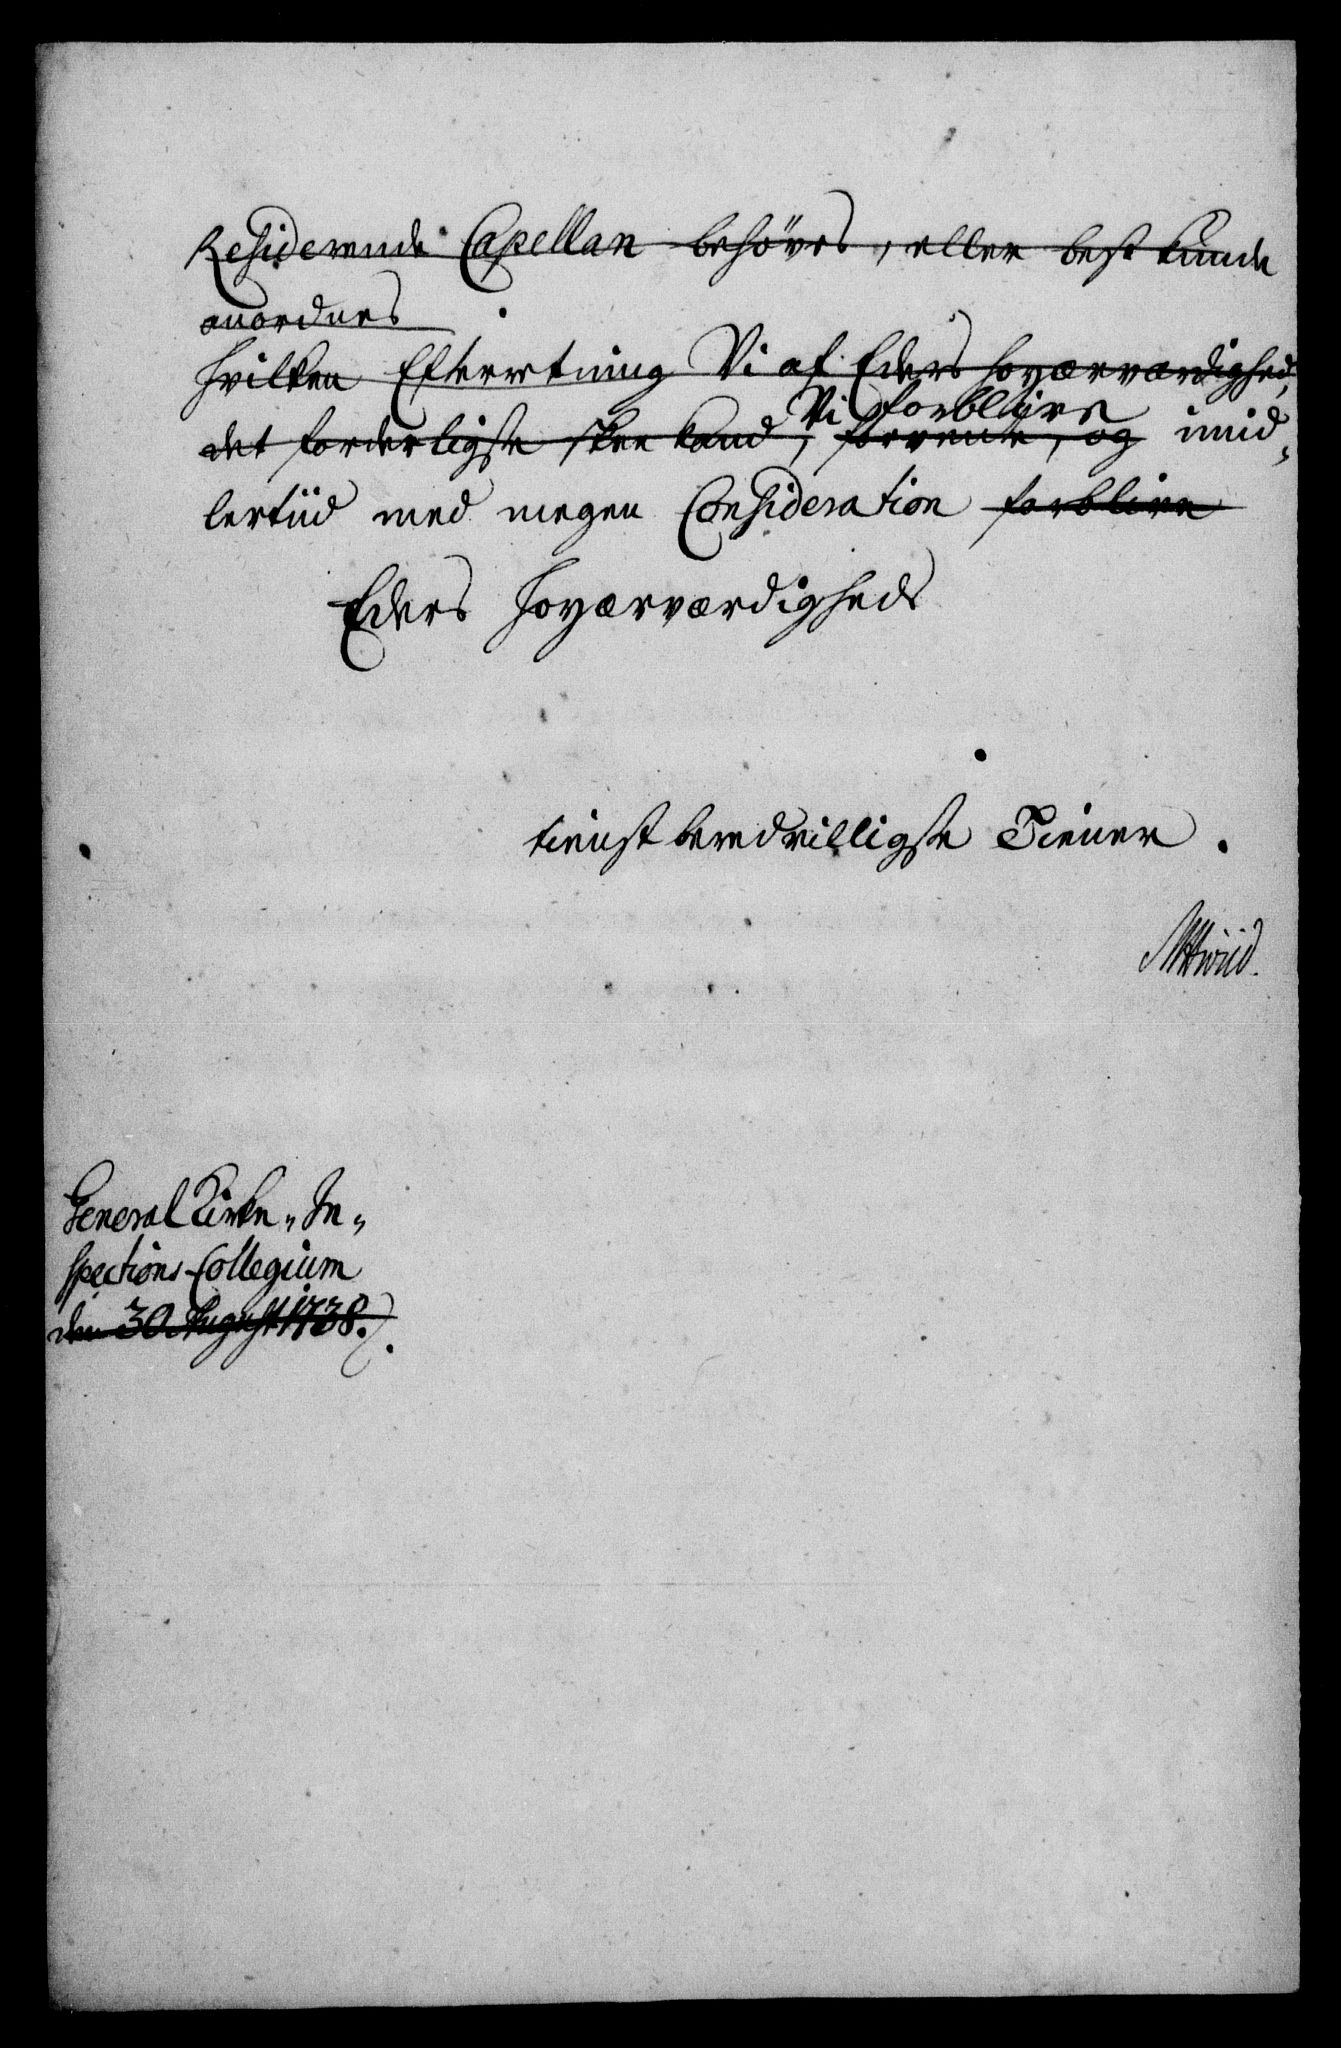 Residerende Capellan behöves, eller best kunde
anordnes
hvilken Efterretning Vi af Eders Høyærværdighed,
Vi forblive
det forderligste skee kand, forvente, og imid„
lertiid med megen Consideration forblive
Eders Høyærværdigheds
tienstberedvilligste Tiener.
General Kirke„In„
spections-Collegium
den 30 August 1738.